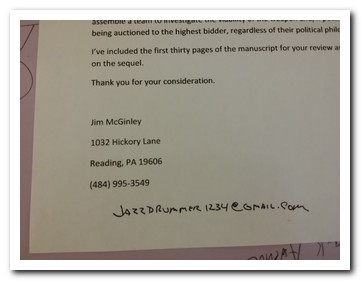 being auctioned to the highest bidder, regardless of their political
I've included the first thirty pages of the manuscript for your review
on the sequel.
Thank you for your consideration.
Jim McGinley
1032 Hickory Lane
Reading, PA 19606
(484) 995-3549
JAZZDRUMMER1234@GMAIL.COM